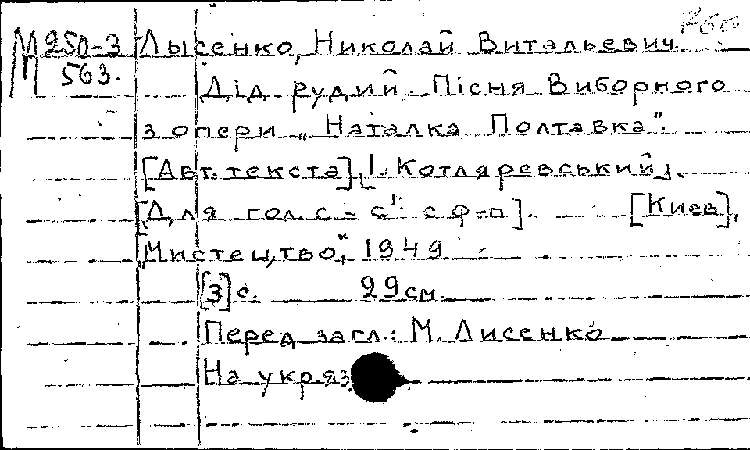 М 250-3 Лысенко, Николай Витальевич
563. Дід рудий. Пісня Виборного
з опери „Наталка Полтавка".
[Авт. текста] І. Котляревський.
[Для гол. с - с¹ с ф-п]. [Киев],
„Мистецтво", 1949
[3] с. 29 см.
Перед загл.: М. Лисенко
На укр. яз